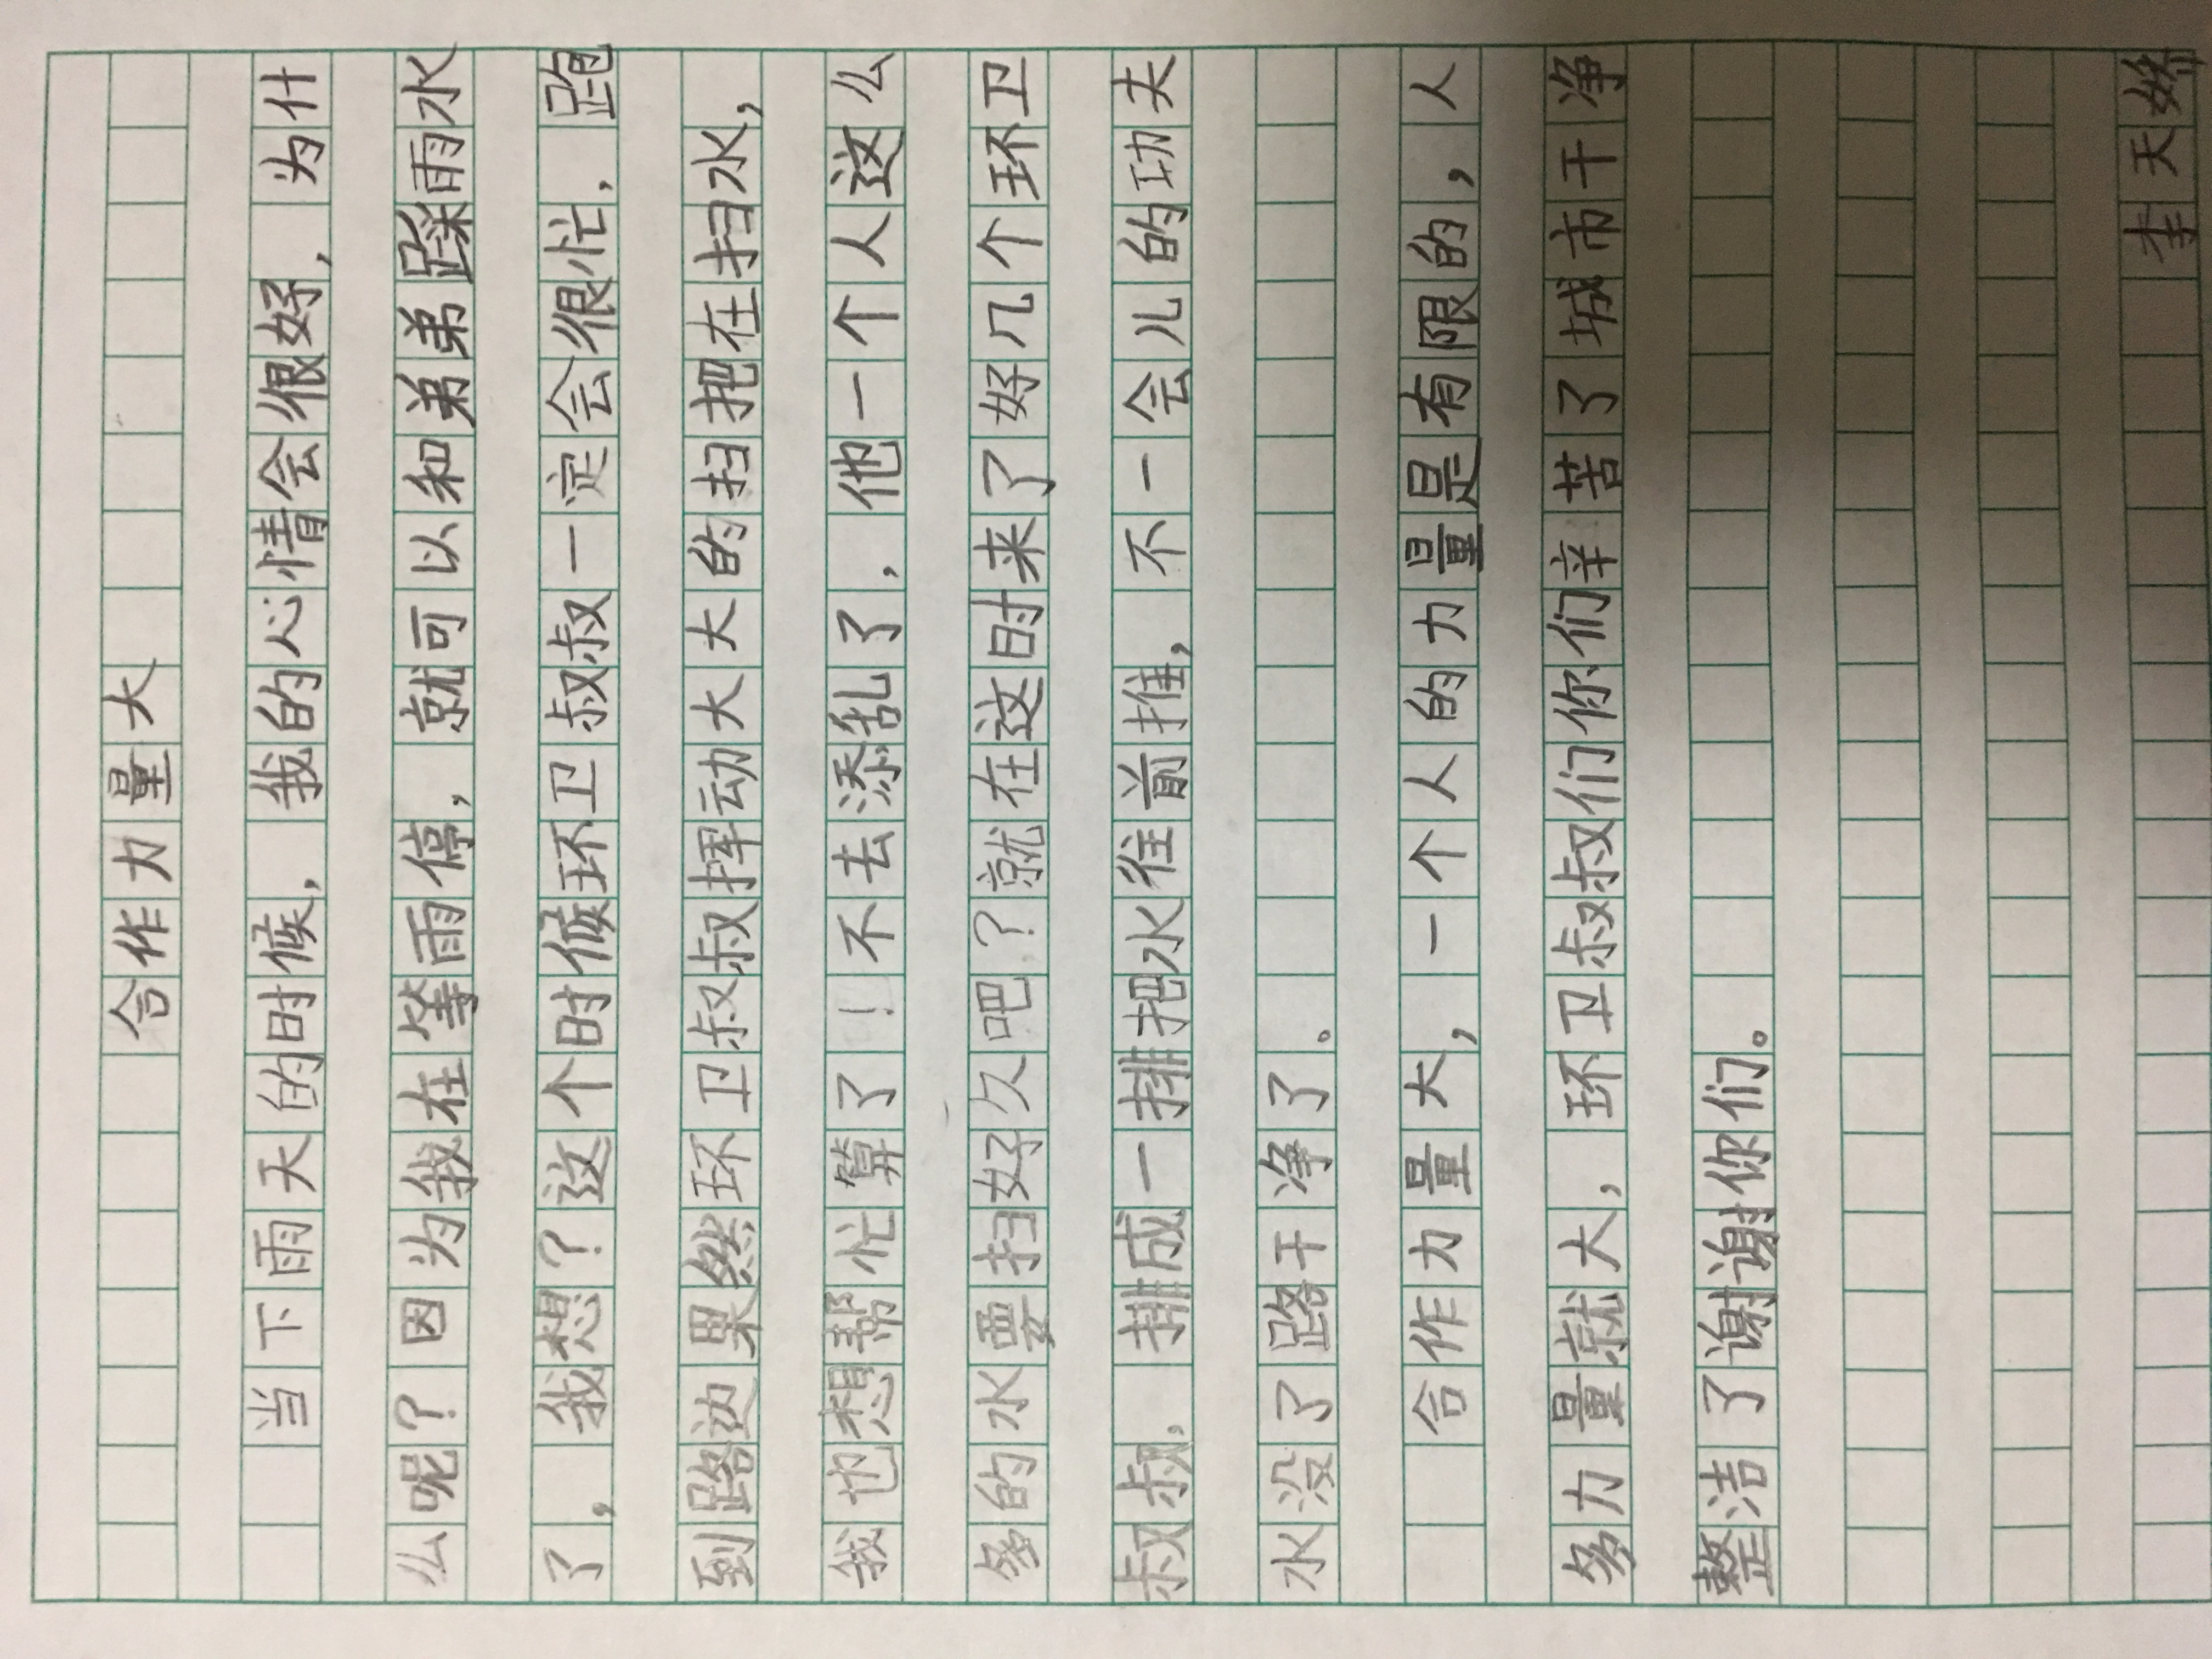 合作力量大
当下雨天的时候，我的心情会很好，为什
么呢？因为我在等雨停，就可以和弟弟踩雨水
了，我想？这个时候环卫叔叔一定会很忙，跑
到路边果然环卫叔叔挥动大大的扫把在扫水，
我也想帮忙算了！不去添乱了，他一个人这么
多的水要扫好久吧？就在这时来了好几个环卫
叔叔，排成一排把水往前推，不一会儿的功夫
水没了路干净了。
合作力量大，一个人的力量是有限的，人
多力量就大，环卫叔叔们你们辛苦了城市干净
整洁了谢谢你们。
李天娇